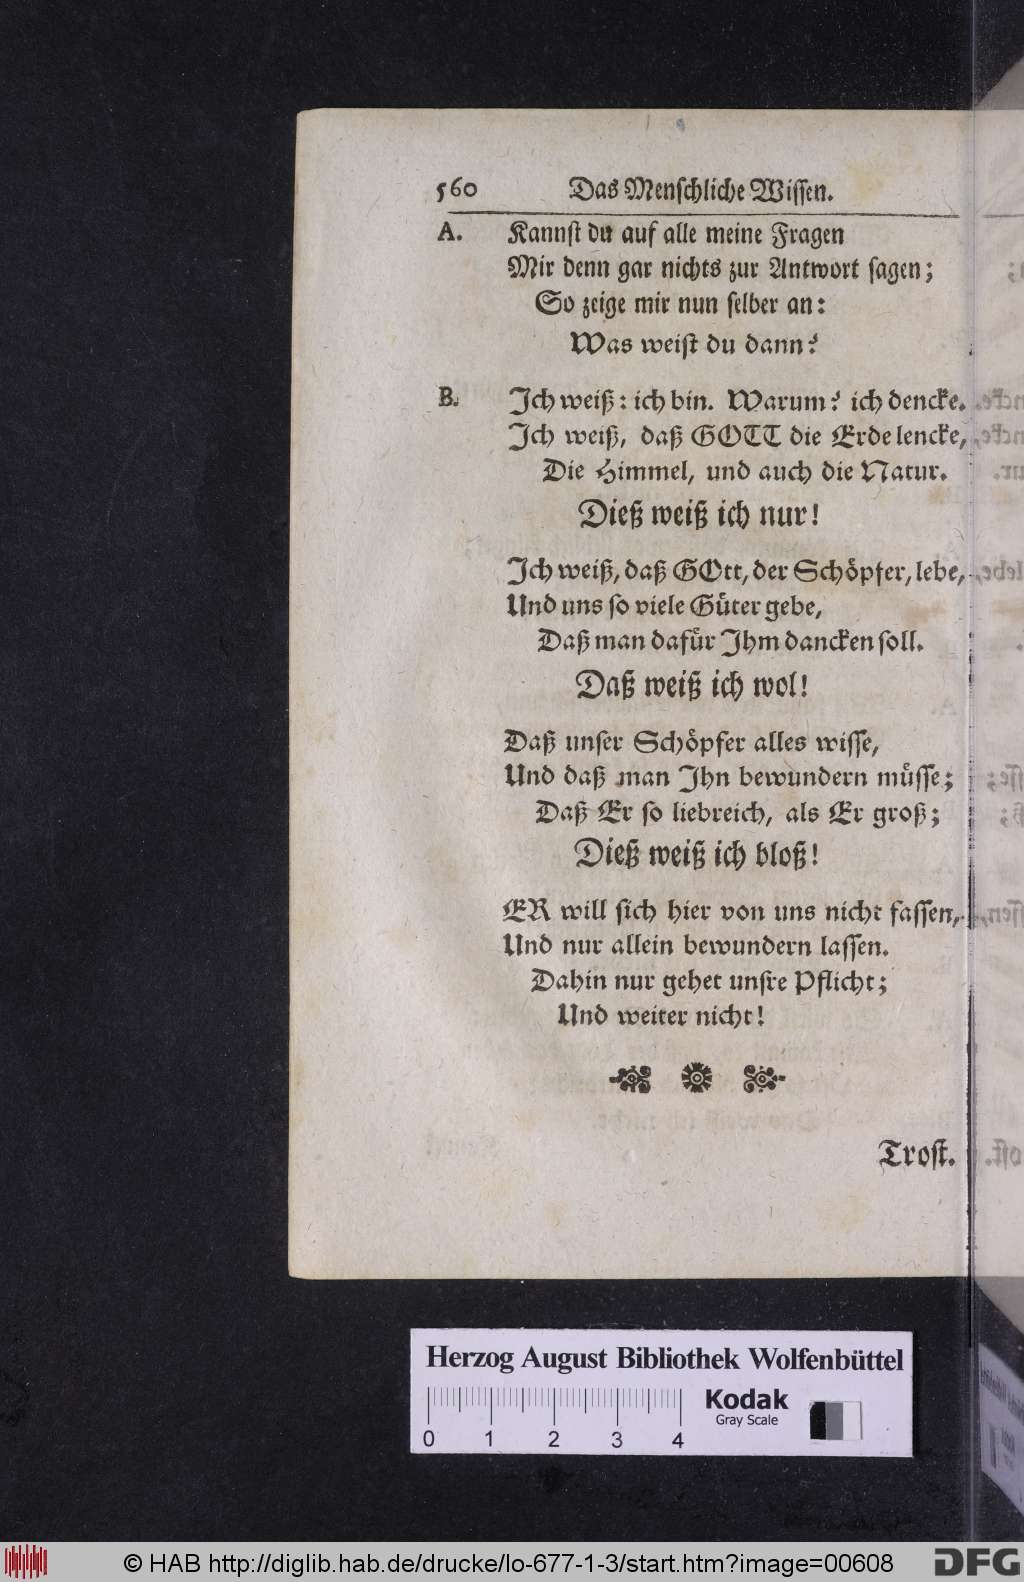 560 Das Menschliche Wissen.
A. Kannst du auf alle meine Fragen
Mir denn gar nichts zur Antwort sagen;
So zeige mir nun selber an:
Was weist du dann?
B. Ich weiß: ich bin. Warum? ich dencke.
Ich weiß, daß GOTT die Erde lencke,
Die Himmel, und auch die Natur.
Dieß weiß ich nur!
Ich weiß, daß GOtt, der Schöpfer, lebe,
Und uns so viele Güter gebe,
Daß man dafür Ihm dancken soll.
Daß weiß ich wol!
Daß unser Schöpfer alles wisse,
Und daß man Ihn bewundern müsse;
Daß Er so liebreich, als Er groß;
Dieß weiß ich bloß!
ER will sich hier von uns nicht fassen,
Und nur allein bewundern lassen.
Dahin nur gehet unsre Pflicht;
Und weiter nicht!
Trost.
Herzog August Bibliothek Wolfenbüttel
Kodak
Gray Scale
0 1 2 3 4
© HAB http://diglib.hab.de/drucke/lo-677-1-3/start.htm?image=00608
DFG